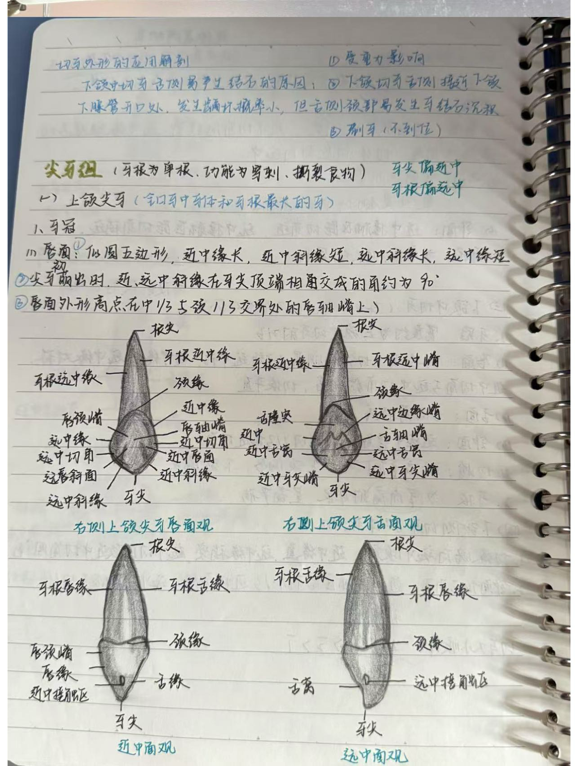 切牙外形的应用解剖
① 重力影响
下颌中切牙舌侧易产生结石的原因:② 下颌切牙舌侧接近下颌
下腺管开口处,发生龋坏概率小,但舌侧颈部易发生牙结石沉积
③ 刷牙(不到位)
尖牙组(牙根为单根、功能为穿刺、撕裂食物)
牙尖偏近中
牙根偏远中
(一)上颌尖牙(全口牙中牙体和牙根最大的牙)
1、牙冠
(1) 唇面:①似圆五边形,近中缘长,近中斜缘短,远中斜缘长,远中缘短
②尖牙初萌出时,近、远中斜缘在牙尖顶端相交成的角约为90°
③唇面外形高点在中1/3与颈1/3交界处的唇轴嵴上)
根尖
牙根近中缘
牙根远中缘
颈缘
唇颈嵴
近中缘
唇轴嵴
远中缘
近中切角
远中切角
近中唇面
远唇斜面
近中斜缘
远中斜缘
牙尖
右侧上颌尖牙唇面观
根尖
牙根近中缘
牙根远中嵴
颈缘
舌隆突
远中边缘嵴
近中
舌轴嵴
近中舌窝
远中舌窝
近中牙尖嵴
远中牙尖嵴
牙尖
右侧上颌尖牙舌面观
根尖
牙根唇缘
牙根舌缘
颈缘
唇颈嵴
唇缘
舌缘
近中接触区
牙尖
近中面观
根尖
牙根舌缘
牙根唇缘
颈缘
舌窝
远中接触区
牙尖
远中面观